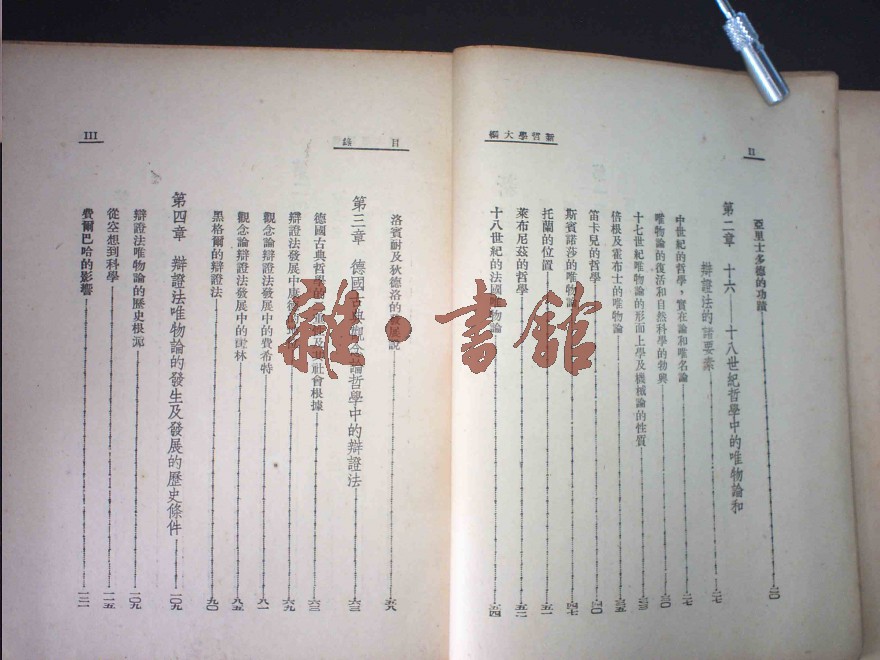 新哲學大綱
II
亞里士多德的功蹟 二〇
第二章 十六——十八世紀哲學中的唯物論和
辯證法的諸要素 二七
中世紀的哲學，實在論和唯名論 二七
唯物論的復活和自然科學的勃興 三〇
十七世紀唯物論的形而上學及機械論的性質 三三
倍根及霍布士的唯物論 三五
笛卡兒的哲學 四〇
斯賓諾莎的唯物論 四七
托蘭的位置 五一
萊布尼茲的哲學 五二
十八世紀的法國唯物論 五四
目錄
III
洛賓耐及狄德洛的發展說 五八
第三章 德國古典觀念論哲學中的辯證法 六三
德國古典哲學的 社會根據 六三
辯證法發展中康德的 六九
觀念論辯證法發展中的費希特 八一
觀念論辯證法發展中的謝林 八五
黑格爾的辯證法 九〇
第四章 辯證法唯物論的發生及發展的歷史條件 一〇九
辯證法唯物論的歷史根源 一〇九
從空想到科學 一一五
費爾巴哈的影響 一二一
雜·書館